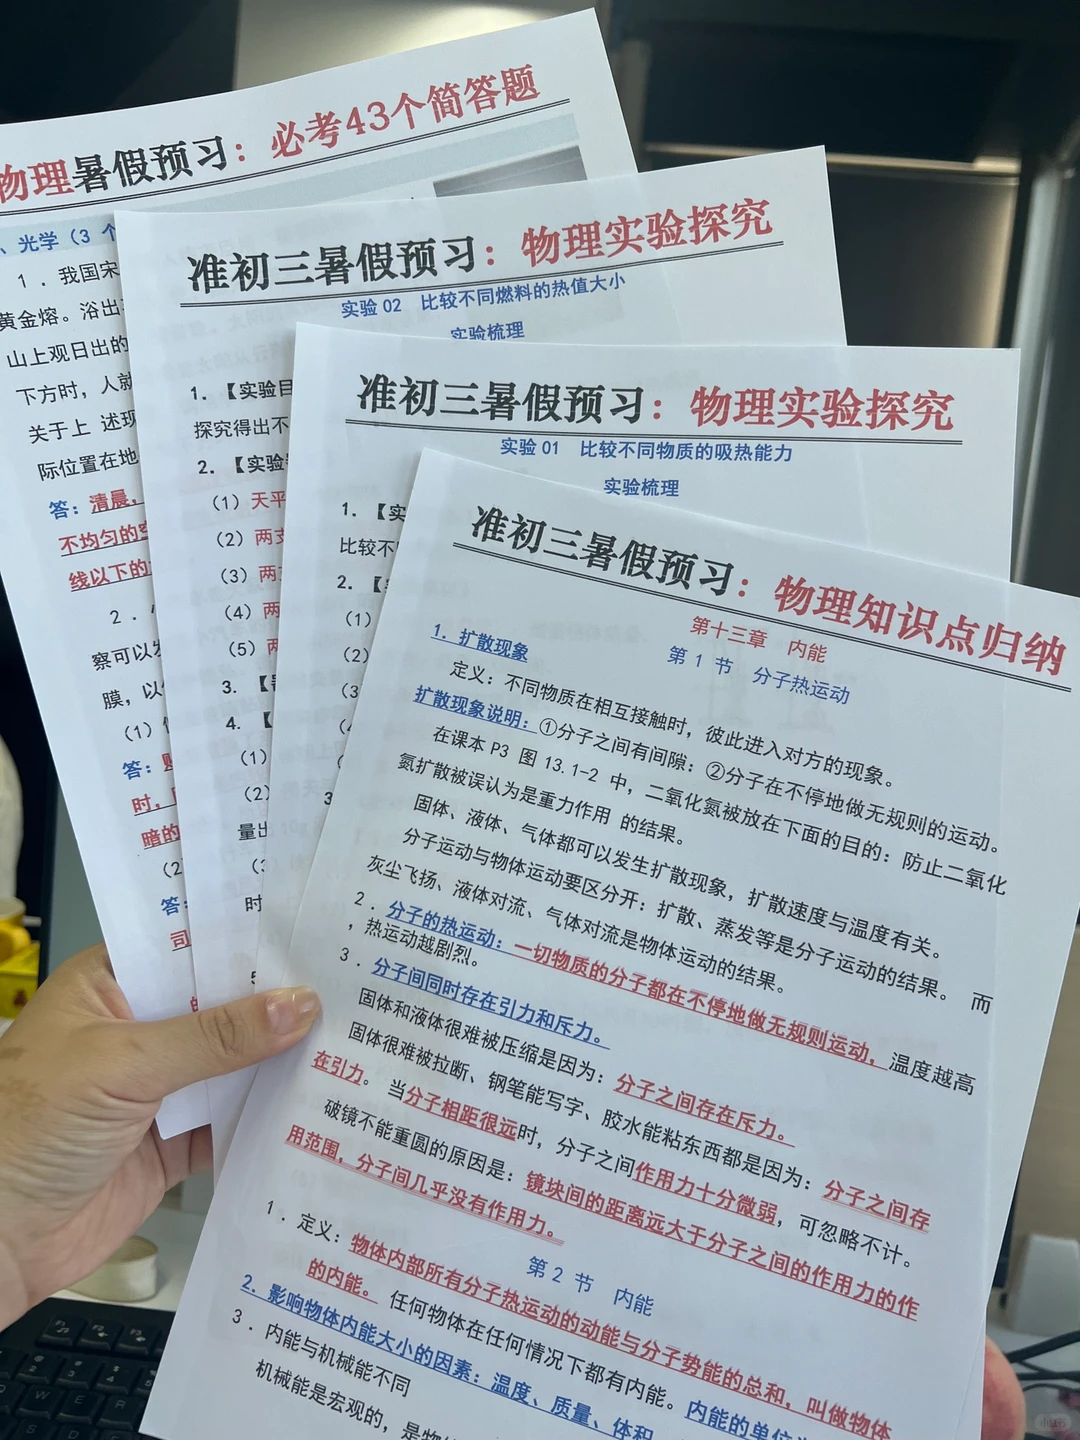 物理暑假预习：必考43个简答题
、光学（3 个
1．我国宋
黄金熔。浴出
山上观日出的
下方时，人就
关于上 述现
际位置在地
答：清晨，
不均匀的空
线以下的
2．
察可以发
膜，以
（1）
答：
时，
暗的
（2
答：
司
准初三暑假预习：物理实验探究
实验 02 比较不同燃料的热值大小
实验梳理
1. 【实验目
探究得出不
2. 【实验
（1）天平
（2）两支
（3）两
（4）两
（5）两
3. 【
4. 【
（1）
（2）
量出
（3
时
5
准初三暑假预习：物理实验探究
实验 01 比较不同物质的吸热能力
实验梳理
1. 【实
比较不
2. 【
（1）
（2）
（3
3
准初三暑假预习：物理知识点归纳
第十三章 内能
第 1 节 分子热运动
1. 扩散现象
定义：不同物质在相互接触时，彼此进入对方的现象。
扩散现象说明：①分子之间有间隙：②分子在不停地做无规则的运动。
在课本 P3 图 13.1-2 中，二氧化氮被放在下面的目的：防止二氧化
氮扩散被误认为是重力作用 的结果。
固体、液体、气体都可以发生扩散现象，扩散速度与温度有关。
分子运动与物体运动要区分开：扩散、蒸发等是分子运动的结果。 而
灰尘飞扬、液体对流、气体对流是物体运动的结果。
2．分子的热运动：一切物质的分子都在不停地做无规则运动，温度越高
，热运动越剧烈。
3．分子间同时存在引力和斥力。
固体和液体很难被压缩是因为：分子之间存在斥力。
固体很难被拉断、钢笔能写字、胶水能粘东西都是因为：分子之间存
在引力。 当分子相距很远时，分子之间作用力十分微弱，可忽略不计。
破镜不能重圆的原因是：镜块间的距离远大于分子之间的作用力的作
用范围，分子间几乎没有作用力。
第 2 节 内能
1．定义：物体内部所有分子热运动的动能与分子势能的总和，叫做物体
的内能。 任何物体在任何情况下都有内能。内能的单位
2. 影响物体内能大小的因素：温度、质量、体积
3．内能与机械能不同
机械能是宏观的，是物
小红书